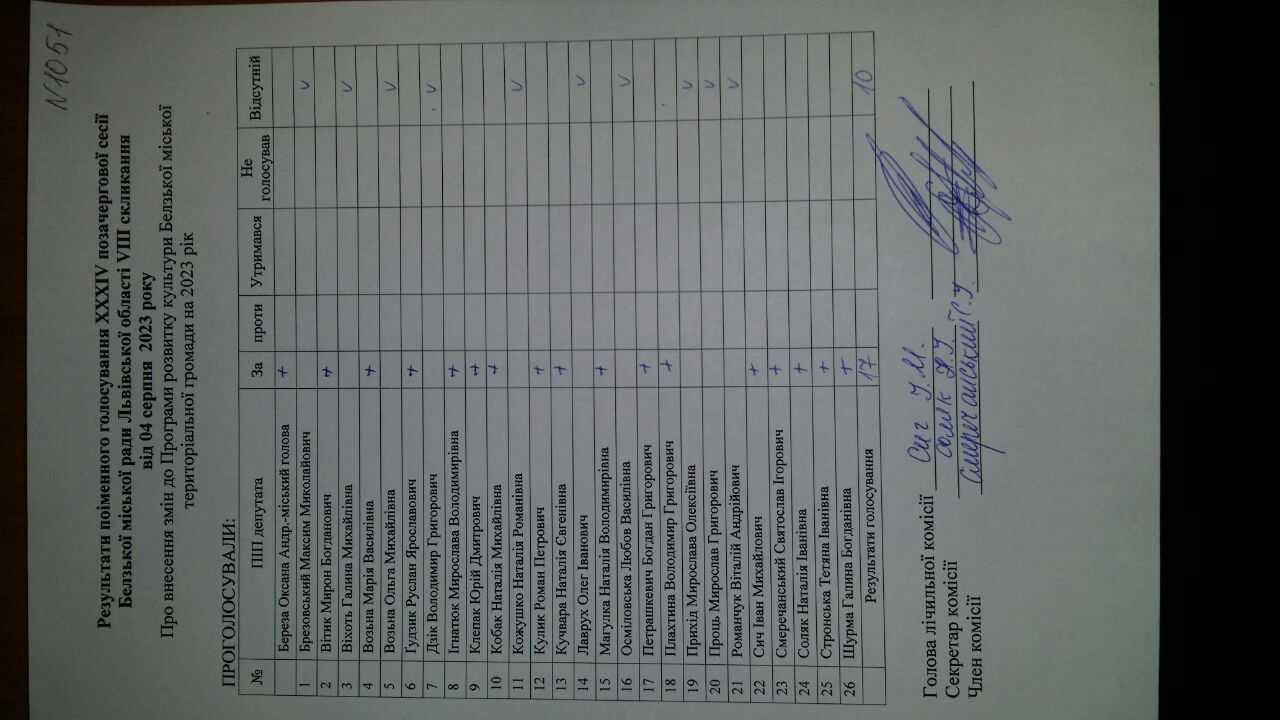 N1051
Результати поіменного голосування XXXIV позачергової сесії
Белзької міської ради Львівської області VIII скликання
від 04 серпня 2023 року
Про внесення змін до Програми розвитку культури Белзької міської
територіальної громади на 2023 рік
ПРОГОЛОСУВАЛИ:
№ ПІП депутата За проти Утримався Не голосував Відсутній
Береза Оксана Андр.-міський голова +
1 Брезовський Максим Миколайович v
2 Вітик Мирон Богданович +
3 Віхоть Галина Михайлівна v
4 Возьна Марія Василівна +
5 Возьна Ольга Михайлівна v
6 Гудзик Руслан Ярославович +
7 Дзік Володимир Григорович v
8 Ігнатюк Мирослава Володимирівна +
9 Клепак Юрій Дмитрович +
10 Кобак Наталія Михайлівна +
11 Кожушко Наталія Романівна v
12 Кулик Роман Петрович +
13 Кучвара Наталія Євгенівна +
14 Лаврух Олег Іванович v
15 Магулка Наталія Володимирівна +
16 Осміловська Любов Василівна v
17 Петрашкевич Богдан Григорович +
18 Плахтина Володимир Григорович +
19 Прихід Мирослава Олексіївна v
20 Проць Мирослав Григорович v
21 Романчук Віталій Андрійович v
22 Сич Іван Михайлович +
23 Смеречанський Святослав Ігорович +
24 Соляк Наталія Іванівна +
25 Стронська Тетяна Іванівна +
26 Шурма Галина Богданівна +
Результати голосування 17 10
Голова лічильної комісії Сич І.М.
Секретар комісії Соляк Н.І.
Член комісії Смеречанський С.І.